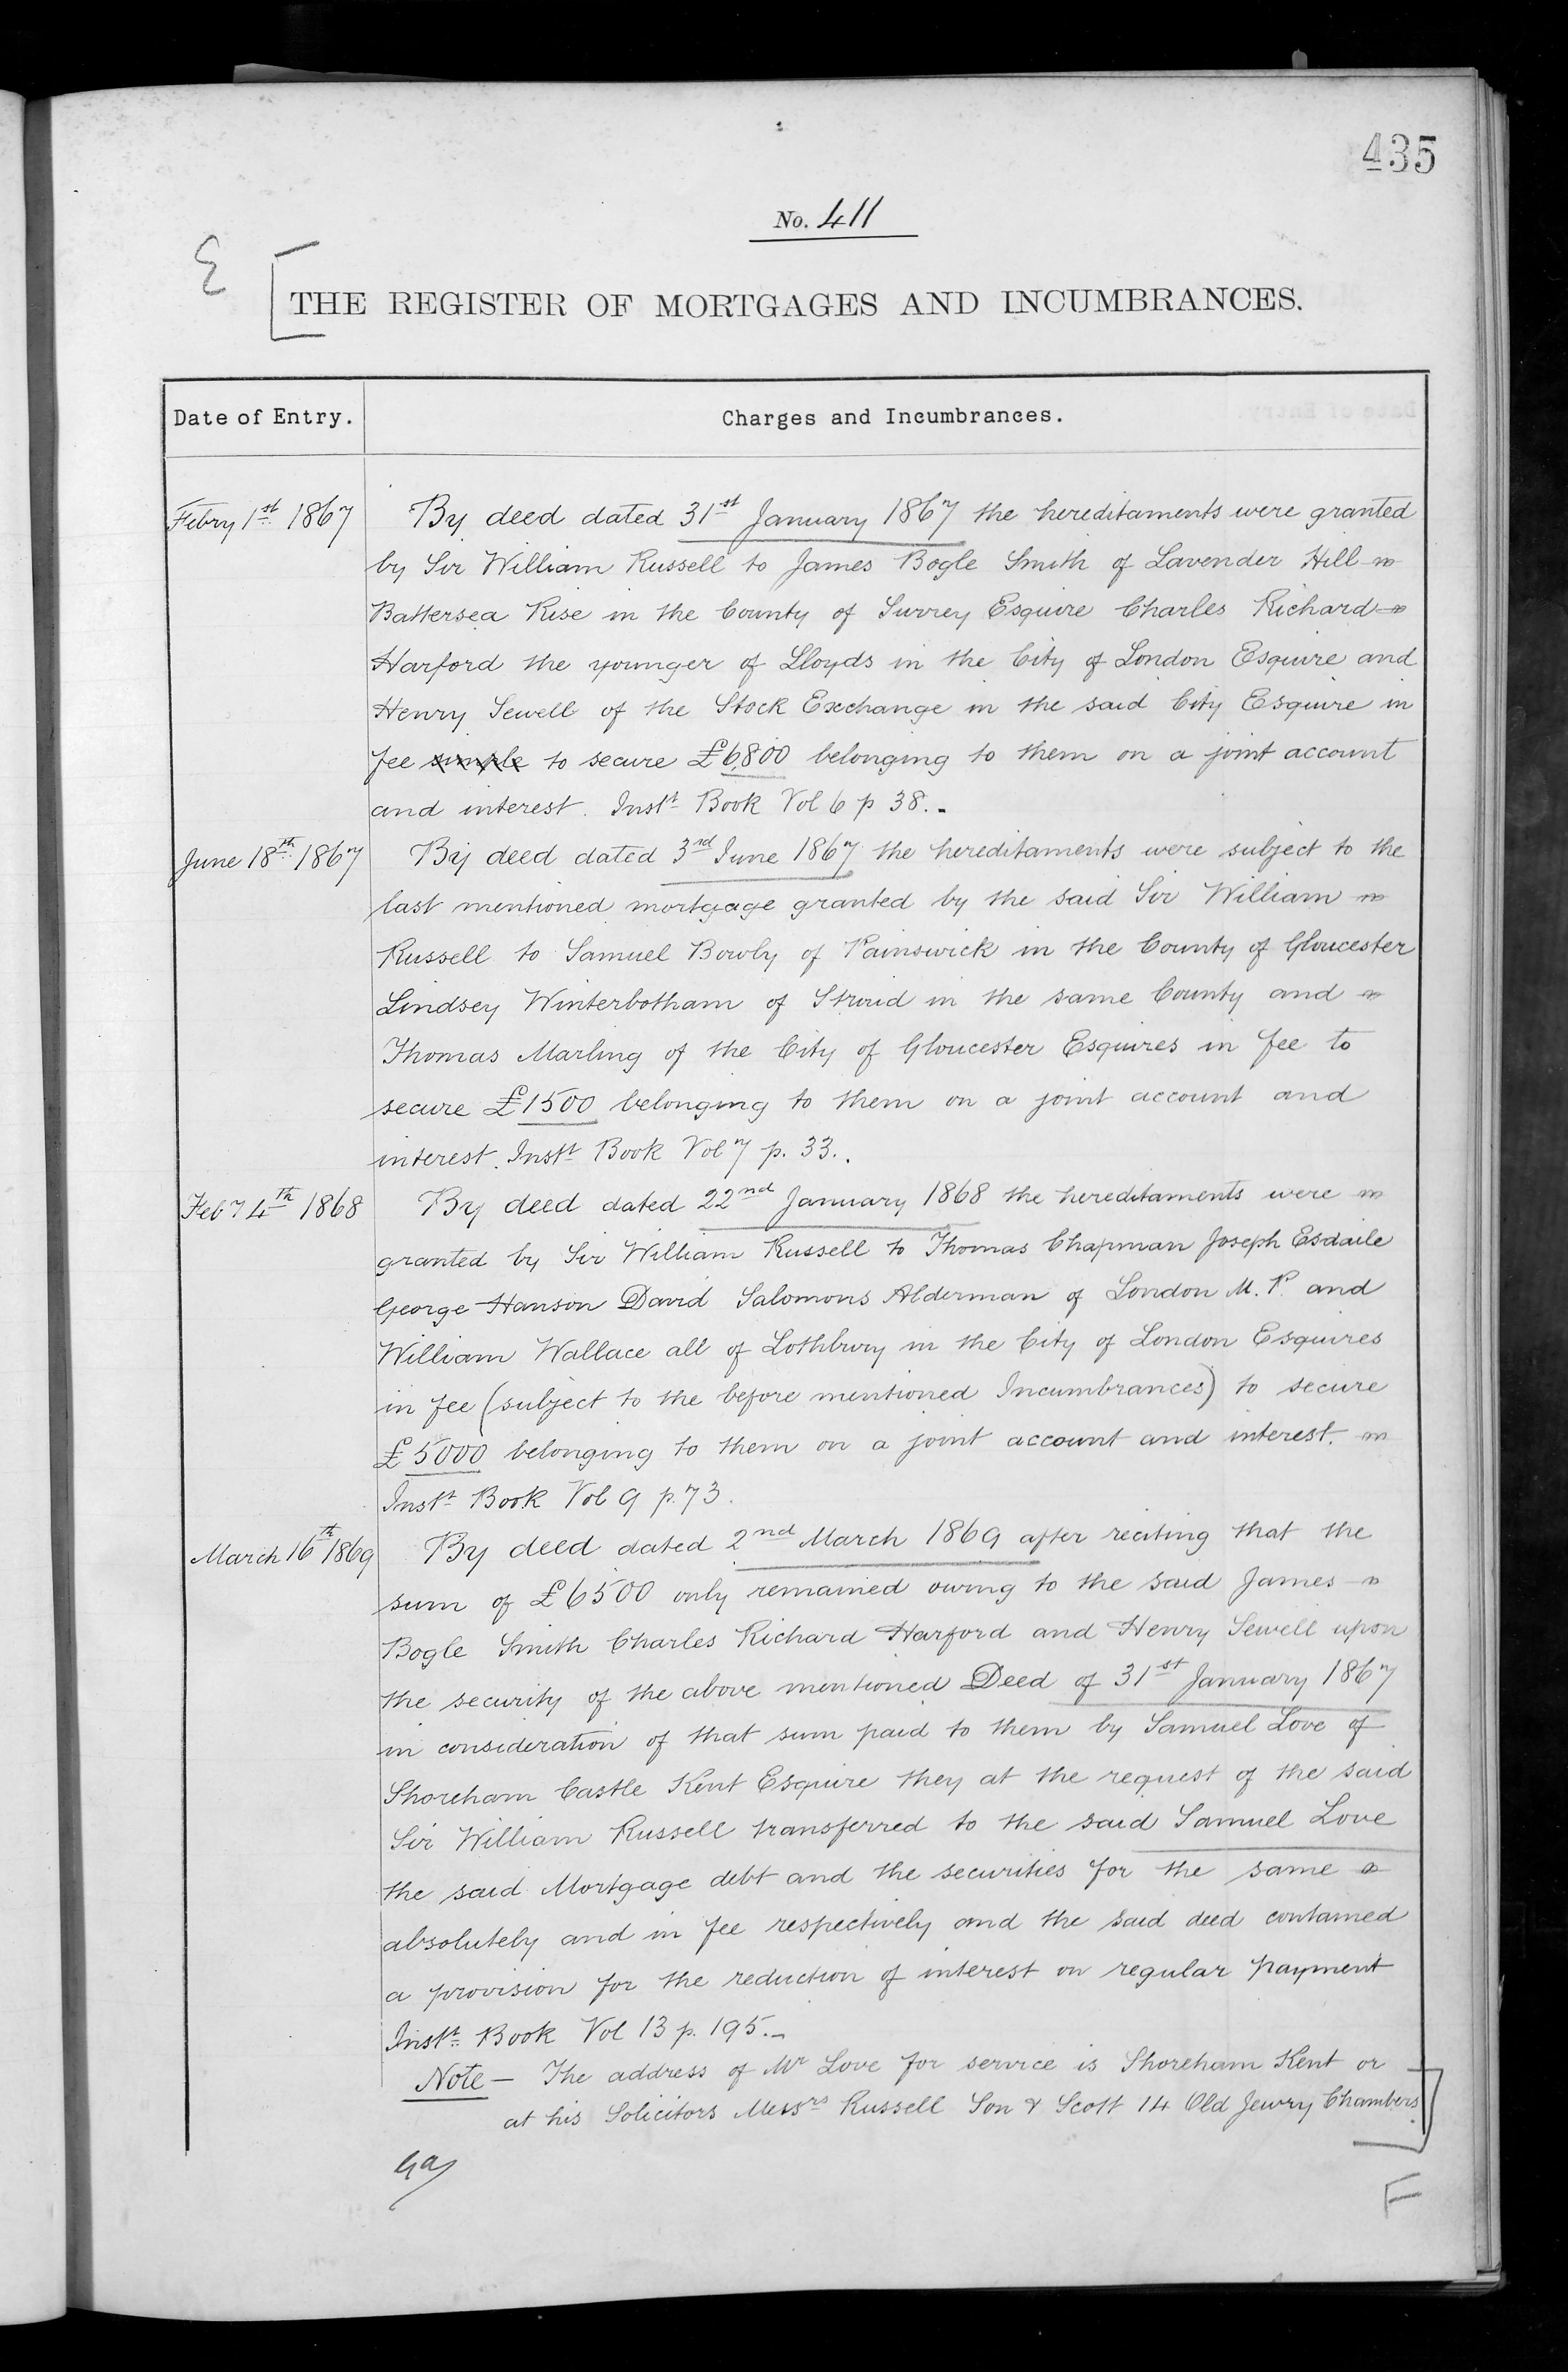 435
No. 411
E
THE REGISTER OF MORTGAGES AND INCUMBRANCES.
Date of Entry. Charges and Incumbrances.
Febry 1st 1867 By deed dated 31st January 1867 the hereditaments were granted
by Sir William Russell to James Bogle Smith of Lavender Hill
Battersea Rise in the County of Surrey Esquire Charles Richard
Harford the younger of Lloyds in the City of London Esquire and
Henry Sewell of the Stock Exchange in the said City Esquire in
fee simple to secure £6,800 belonging to them on a joint account
and interest. Instt Book Vol 6 p 38.
June 18th 1867 By deed dated 3rd June 1867 the hereditaments were subject to the
last mentioned mortgage granted by the said Sir William
Russell to Samuel Bowly of Painswick in the County of Gloucester
Lindsey Winterbotham of Stroud in the same County and
Thomas Marling of the City of Gloucester Esquires in fee to
secure £1500 belonging to them on a joint account and
interest. Instt Book Vol 7 p. 33.
Feby 4th 1868 By deed dated 22nd January 1868 the hereditaments were
granted by Sir William Russell to Thomas Chapman Joseph Esdaile
George Hanson David Salomons Alderman of London M.P. and
William Wallace all of Lothbury in the City of London Esquires
in fee (subject to the before mentioned Incumbrances) to secure
£5000 belonging to them on a joint account and interest.
Instt Book Vol 9 p. 73.
March 16th 1869 By deed dated 2nd March 1869 after reciting that the
sum of £6500 only remained owing to the said James
Bogle Smith Charles Richard Harford and Henry Sewell upon
the security of the above mentioned Deed of 31st January 1867
in consideration of that sum paid to them by Samuel Love of
Shoreham Castle Kent Esquire they at the request of the said
Sir William Russell transferred to the said Samuel Love
the said Mortgage debt and the securities for the same
absolutely and in fee respectively and the said deed contained
a provision for the reduction of interest on regular payment
Instt Book Vol 13 p. 195.
Note — The address of Mr Love for service is Shoreham Kent or
at his Solicitors Messrs Russell Son & Scott 14 Old Jewry Chambers
F